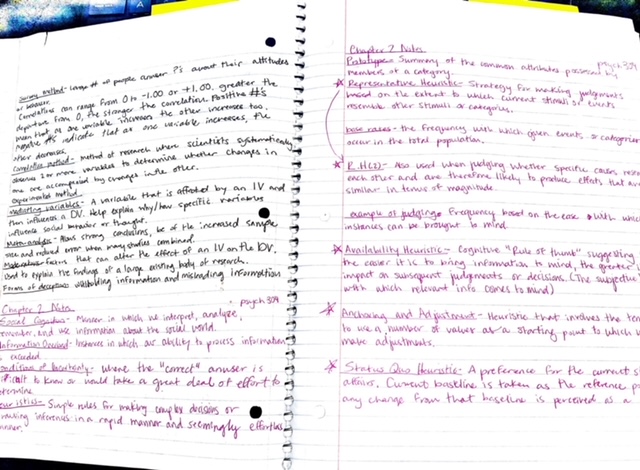 Survey method- Large # of people answer ?'s about their attitudes
or behavior.
Correlations can range from 0 to -1.00 or +1.00. greater the
departure from 0, the stronger the correlation. Positive #'s
mean that as one variable increases the other increases too.
negative #'s indicate that as one variable increases, the
other decreases.
Correlation method- Method of research where scientists systematically
observe 2 or more variables to determine whether changes in
one are accompanied by changes in the other.
experimental method-
Mediating variables- A variable that is affected by an IV and
then influences a DV. Help explain why/how specific variables
influence social behavior or thought.
Meta-analysis- Allows strong conclusions, bc of the increased sample
size and reduced error when many studies combined.
Moderators- Factors that can alter the effect of an IV on the DV.
Used to explain the findings of a large existing body of research.
Forms of deception: witholding information and misleading information
Chapter 2 Notes psych 309
Social Cognition- Manner in which we interpret, analyze,
remember, and use information about the social world.
Information Overload- Instances in which our ability to process information
is exceeded.
Conditions of Uncertainty- where the "correct" answer is
difficult to know or would take a great deal of effort to
determine.
Heuristics- Simple rules for making complex decisions or
making inferences in a rapid manner and seemingly effortless
manner.
Chapter 2 Notes psych 309
Prototype- Summary of the common attributes possessed by
members of a category.
Representative Heuristic- Strategy for making judgements
based on the extent to which current stimuli or events
resemble other stimuli or categories.
base rates- the frequency with which given events, or categories
occur in the total population.
R.H (2)- Also used when judging whether specific causes rese
each other and are therefore likely to produce effects, that are
similar in terms of magnitude.
example of judging- Frequency based on the ease with which
instances can be brought to mind
Availability Heuristic- Cognitive "Rule of thumb" suggesting
the easier it is to bring information to mind, the greater
impact on subsequent judgements or decisions. (The
with which relevant info comes to mind)
Anchoring and Adjustment- Heuristic that involves the ten
to use a number of value as a starting point to which w
make adjustments.
Status Quo Heuristic- A preference for the current s
affairs. Current baseline is taken as the reference po
any change from that baseline is perceived as a